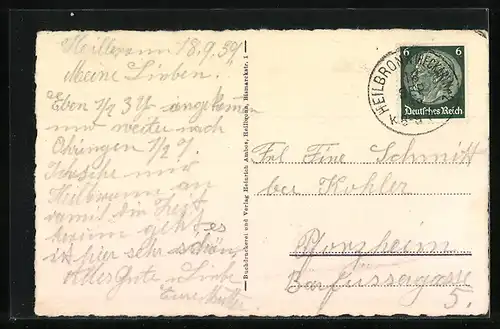 Heilbronn 18.9.39
Meine Lieben.
Eben 1/2 3 angekommen
und weiter nach
Öhringen 1/2 7.
und
Heilbronn an
damit die Zeit
herum geht es
ist hier sehr schön,
Alles Gute u Liebe
Eure Mutter
Buchdruckerei und Verlag Heinrich Ambos, Heilbronn, Bismarckstr. 1
HEILBRONN (NECKAR)
6 6
Deutsches Reich
Frl Fine Schmitt
bei Kohler
Pforzheim
Barfüssergasse
5.